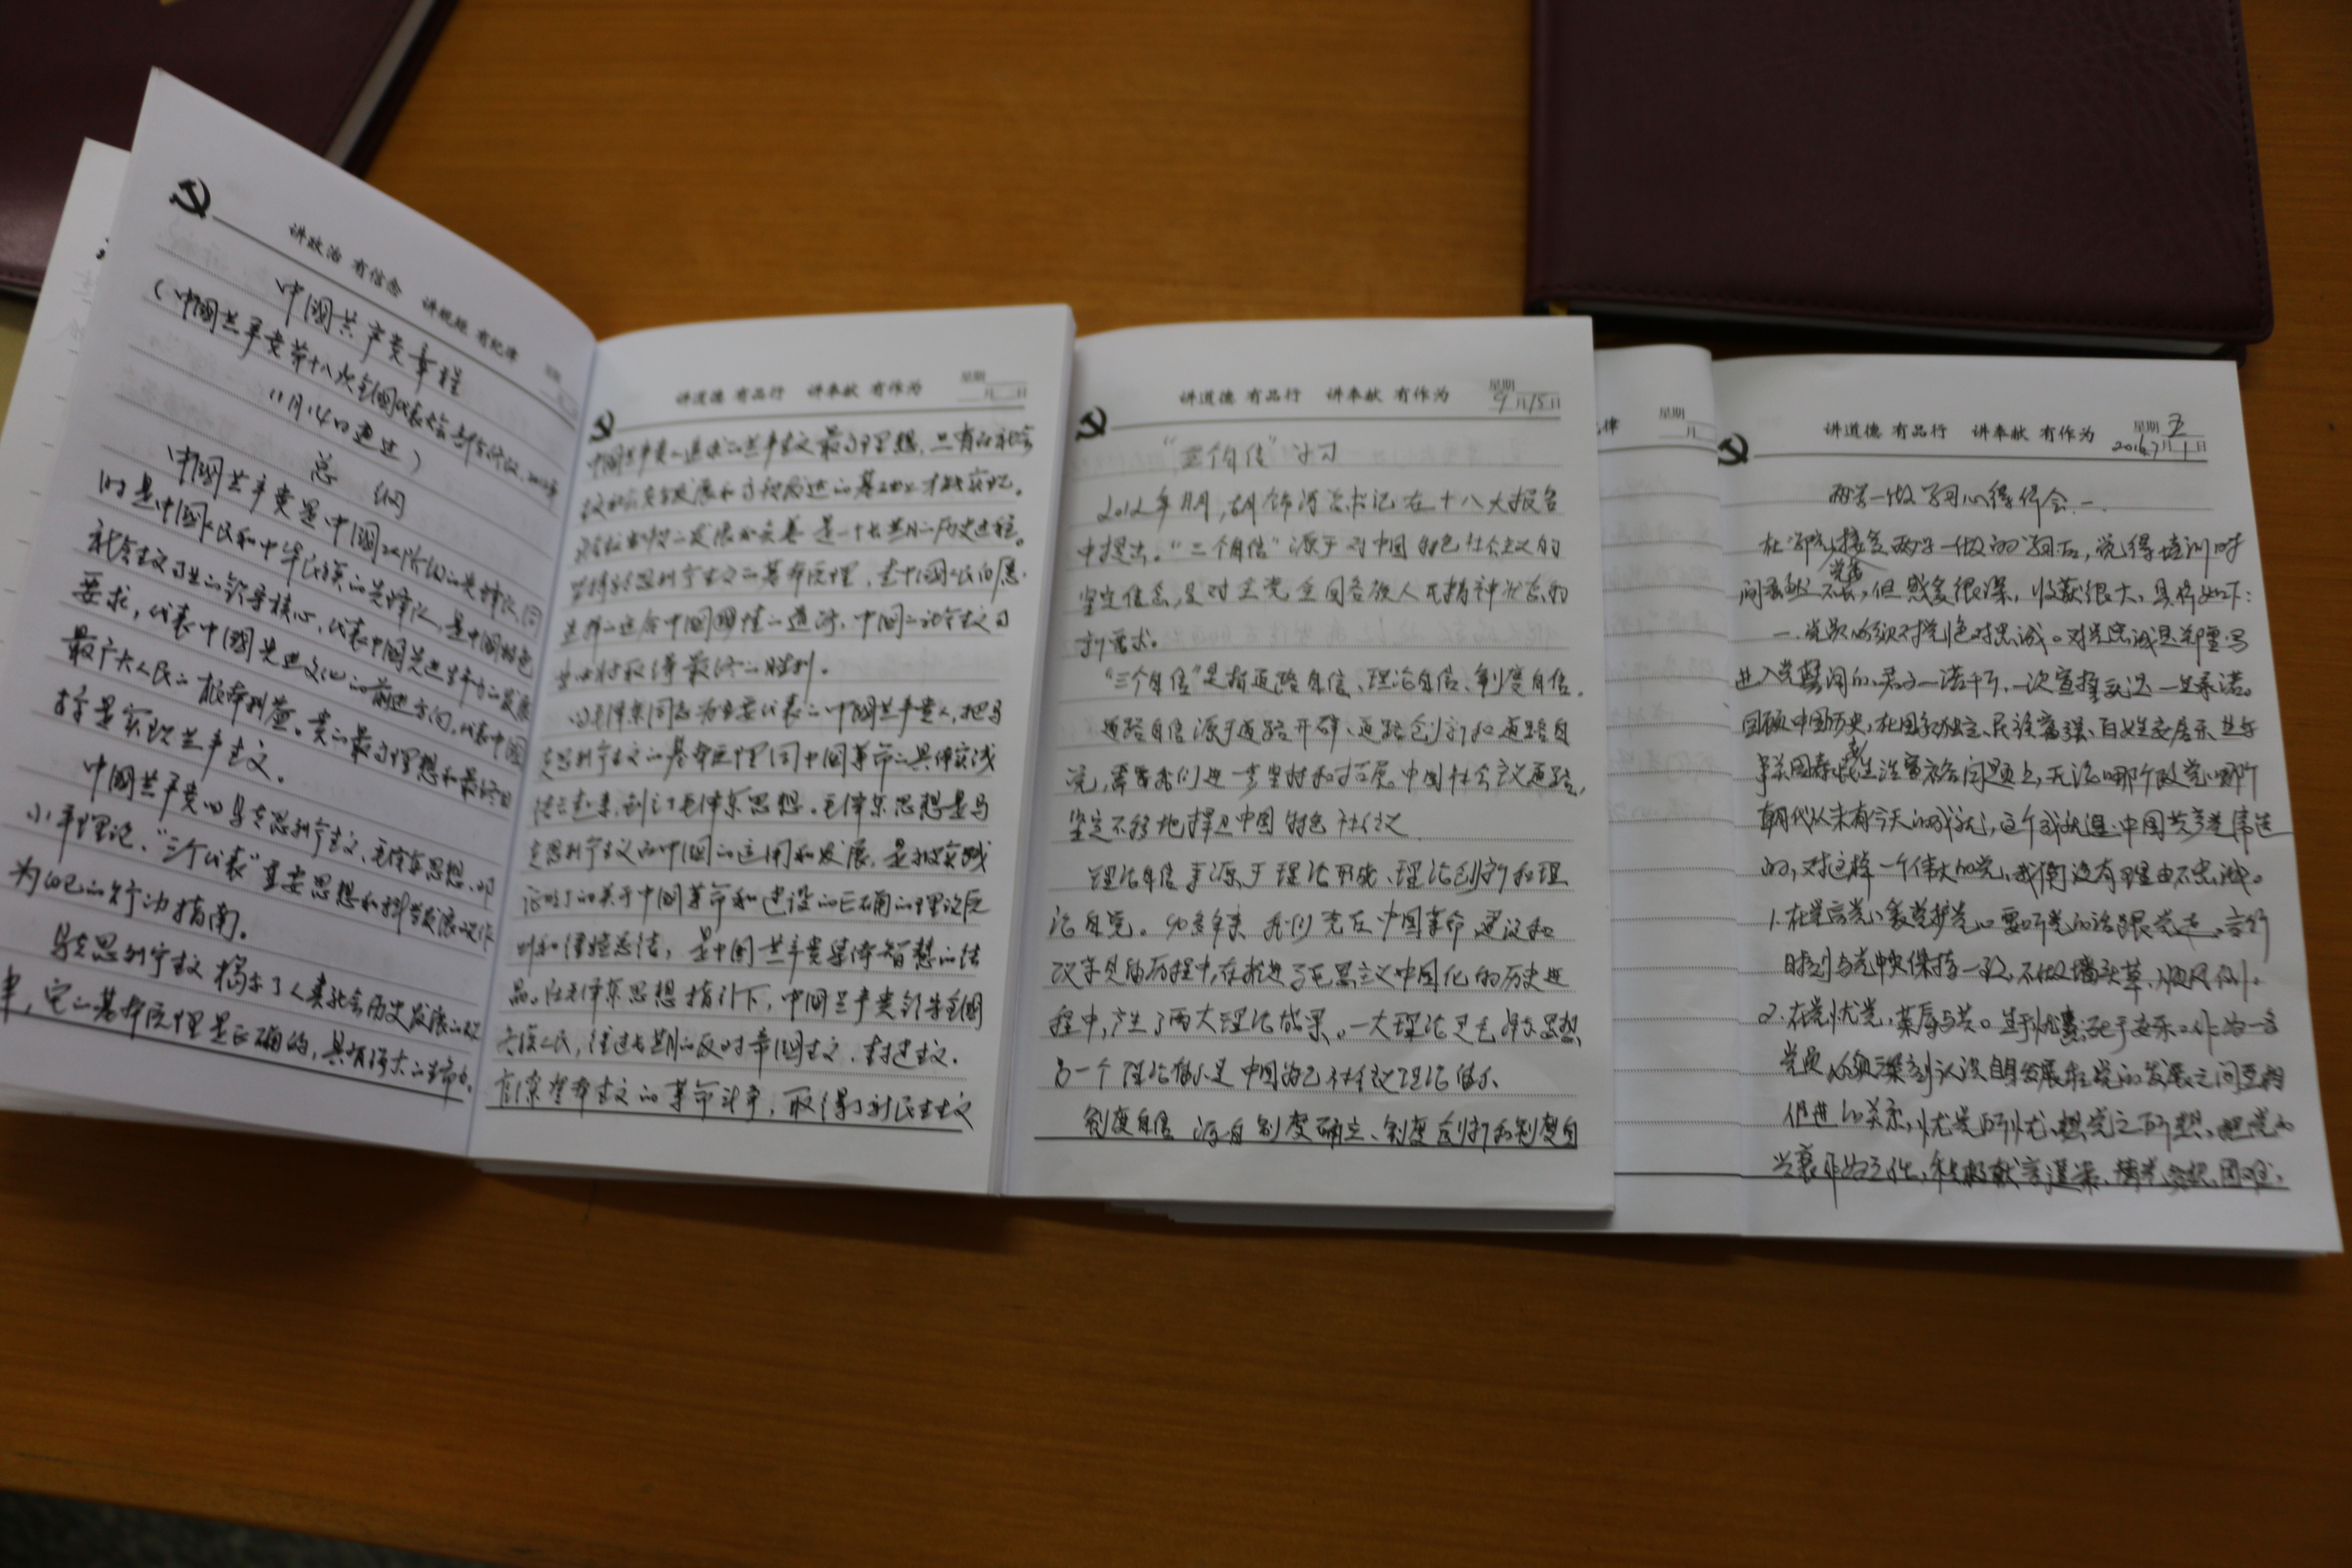 讲政治 有信念 讲规矩 有纪律
中国共产党章程
(中国共产党第十八次全国代表大会部分修改,2012年
11月14日通过)
总 纲
中国共产党是中国工人阶级的先锋队,同
时是中国人民和中华民族的先锋队,是中国特色
社会主义事业的领导核心,代表中国先进生产力的发展
要求,代表中国先进文化的前进方向,代表中国
最广大人民的根本利益。党的最高理想和最终目
标是实现共产主义。
中国共产党以马克思列宁主义、毛泽东思想、邓
小平理论、“三个代表”重要思想和科学发展观作
为自己的行动指南。
马克思列宁主义揭示了人类社会历史发展的规
律,它的基本原理是正确的,具有强大的生命力。
讲道德 有品行 讲奉献 有作为 星期
月 日
中国共产党人追求的共产主义最高理想,只有在社会
主义社会充分发展和高度发达的基础上才能实现。
社会主义制度的发展和完善是一个长期的历史过程。
坚持马克思列宁主义的基本原理,走中国人民自愿
选择的适合中国国情的道路,中国的社会主义事
业必将取得最终的胜利。
以毛泽东同志为主要代表的中国共产党人,把马
克思列宁主义的基本原理同中国革命的具体实践
结合起来,创立了毛泽东思想。毛泽东思想是马
克思列宁主义在中国的运用和发展,是被实践
证明了的关于中国革命和建设的正确的理论原
则和经验总结,是中国共产党集体智慧的结
晶。在毛泽东思想指引下,中国共产党领导全国
各族人民,经过长期的反对帝国主义、封建主义、
官僚资本主义的革命斗争,取得了新民主主义
讲道德 有品行 讲奉献 有作为 星期
9月15日
“三个自信”学习
2012年11月,胡锦涛总书记在十八大报告
中提出。“三个自信”源于对中国特色社会主义的
坚定信念,是对全党全国各族人民精神状态的
新需求。
“三个自信”是指道路自信、理论自信、制度自信。
道路自信源于道路开辟、道路创新和道路自
觉,需要我们进一步坚持和拓展中国社会主义道路,
坚定不移地捍卫中国特色社会主义
理论自信来源于理论形成、理论创新和理
论自觉。90多年来我们党在中国革命、建设和
改革的历程中,在推进马克思主义中国化的历史进
程中,产生了两大理论成果。一大理论是毛泽东思想,
另一个理论体系是中国特色社会主义理论体系
制度自信 源自制度确立、制度创新和制度自
律 星期
月
讲道德 有品行 讲奉献 有作为 星期五
2016.7月1日
两学一做学习心得体会一
在学院接受两学一做的学习后,觉得培训时
间虽然不长,但感受很深,收获很大,具体如下:
一.党员必须对党绝对忠诚。对党忠诚是郑重写
进入党誓词的,君子一诺千斤,一次宣誓就是一生承诺。
回顾中国历史,在国家独立、民族富强、百姓安居乐业
生活富裕问题上,无论哪个政党哪个
朝代从未有今天的成就,这个成就是中国共产党缔造
的,对这样一个伟大的党,我们没有理由不忠诚。
1.在党言党、爱党护党。要听党的话跟党走,言行
时刻与党中央保持一致,不做墙头草,顺风倒。
2.在党忧党,荣辱与共。生于忧患死于安乐。作为一名
党员必须深刻认识自身发展和党的发展之间互相
促进的关系,忧党所忧、想党之所想,把党的
兴衰作为己任,积极献言谏策,